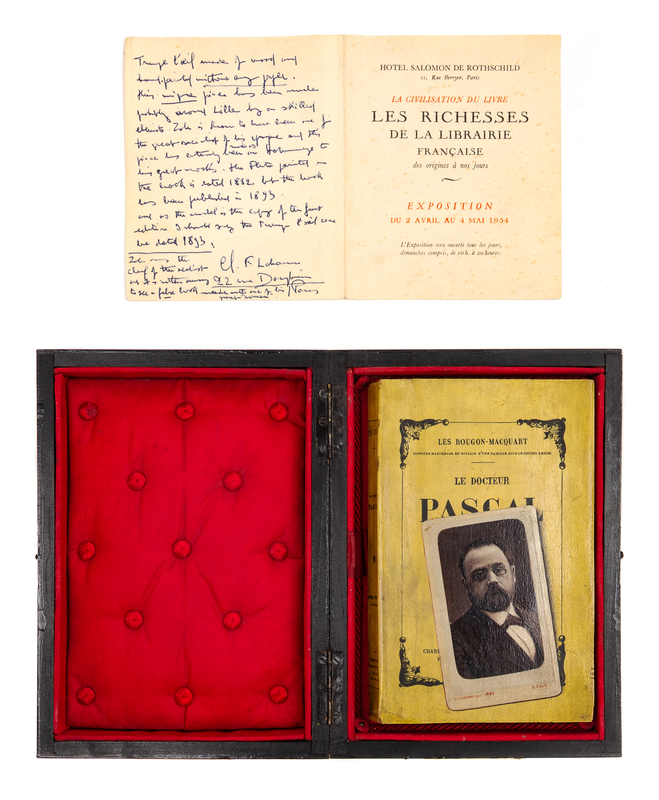 Trompe l'œil made of wood and
hand painted without any paper.
this unique piece has been made
probably around Lille by a skilled
Zola is known to have been one of
the great of his epoque and this
piece has certainly been an Hommage to
his great works. the Photo painted on
the book is dated 1882 but the book
has been published in 1893
and as the model is the copy of the first
edition I should say the Trompe l'œil can
be dated 1893.
Zola was the
chief of the realist
to see a false book made with one of his
22 rue
Paris
HOTEL SALOMON DE ROTHSCHILD
11, Rue Berryer, Paris
LA CIVILISATION DU LIVRE
LES RICHESSES
DE LA LIBRAIRIE
FRANÇAISE
des origines à nos jours
EXPOSITION
DU 2 AVRIL AU 4 MAI 1954
L'Exposition sera ouverte tous les jours,
dimanches compris, de 10 h. à 20 heures.
LES ROUGON-MACQUART
HISTOIRE NATURELLE ET SOCIALE D'UNE FAMILLE SOUS LE SECOND EMPIRE
LE DOCTEUR
PASCAL
CHAR